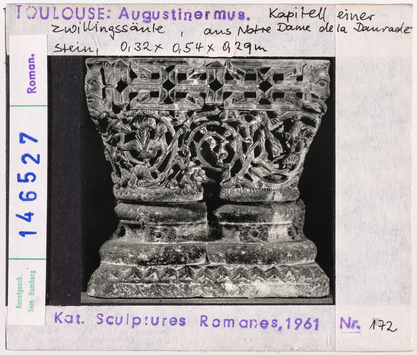 TOULOUSE: Augustinermus. Kapitell einer
Zwillingssäule, aus Notre Dame de la Daurade
Stein, 0,32 x 0,54 x 0,29m
Roman.
146527
Kunstgesch.
Sem. Hamburg
Kat. Sculptures Romanes, 1961 Nr. 172